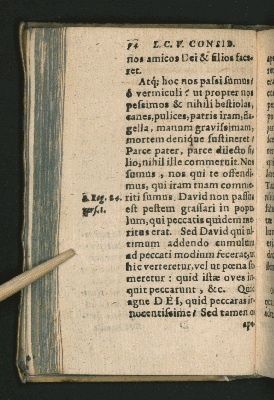 94 L. C. V. CONSID.
nos amicos Dei & filios face-
ret.
Atq; hoc nos passi sumus?
ô vermiculi? ut propter nos
pessimos & nihili bestiolas,
canes, pulices, patris iram, fla-
gella, manum gravissimam,
mortem denique sustineret?
Parce pater, parce dilecto fi-
lio, nihil ille commeruit. Nos
sumus, nos qui te offendi-
mus, qui iram tuam comme-
2. Reg. 24. riti sumus. David non passus
vers. 1. est pestem grassari in popu-
lum, qui peccatis quidem me-
ritus erat. Sed David qui ul-
timum addendo cumulum
ad peccati modium fecerat, ut
hic verteretur, vel ut pœna
meretur: quid istæ oves in-
quit peccarunt, &c. Quid
agne DEI, quid peccaras in-
nocentissime? Sed tamen